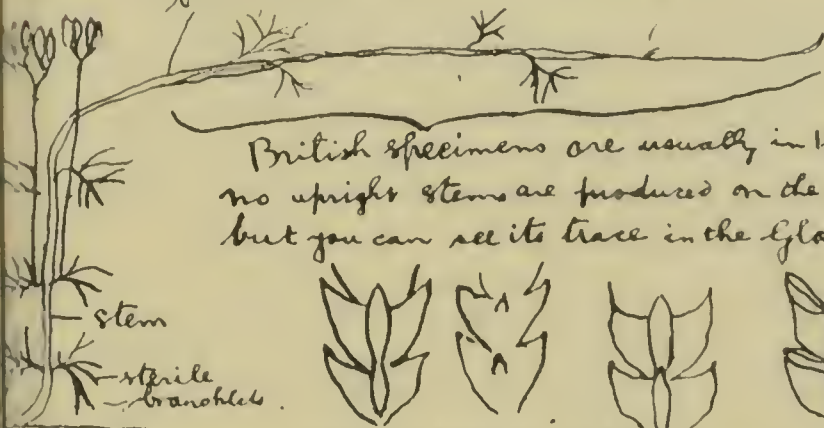 British specimens are usually in
no upright stems are produced on the
but you can see its trace in the
stem
sterile
branchlets.